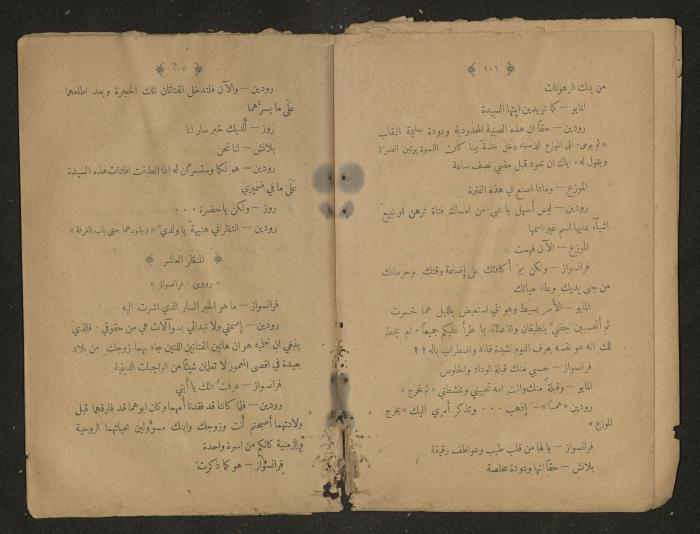 ﴿ ١٠٦ ﴾
من بنك الرهونات
المايو – كما تريدين ايتها السيدة
رودين – حقًا ان هذه الصبية المحدودبة ودودة سليمة القلب
« ثم يومي الى الموزع الذي دخل خلسة بينما كانت النسوة يرتبن الصرة
ويقول له » اياك ان تعود قبل مضي نصف ساعة
الموزع – وماذا اصنع في هذه الفترة
رودين – ليس أسهل يا غبي من امساك فتاة ترهن او تبيع
اشيآء عليها اسم غير اسمها
الموزع – الآن فهمت
فرانسواز – ولكن بمَ أكافئك على إضاعة وقتك وحرمانك
من جنى يديك وعلة حياتك
المايو – الأمر بسيط وهو اني استعيض بالليل عما خسرت
ثم أتحسبين جفنيَّ ينطبقان وانا عالمة بما طرأ عليكم جميعًا. لم يخطر
لك انه هو نفسه يعرف النوم لشدة قلقه واضطراب باله ؟ ؟
فرانسواز – حسبي منك قبلة الوداد والخلوص
المايو – وقبلة منك وانت امه تحييني وتنشطني « ثم تخرج »
رودين « همسًا » – إذهب . . . وتذكر أمري اليك « يخرج
الموزع »
فرانسواز – يا لها من قلب طيب وعواطف رقيقة
بلانش – حقًا انها ودودة مخلصة
﴿ ١٠٧ ﴾
رودين – والآن فلتدخل الفتاتان تلك الحجرة وبعد اطلعهما
على ما يسرُّهما
روز – ألديك خبر سار لنا
بلانش – أنا نحن
رودين – هو لكما وستسرَّان له اذا انطبقت افادات هذه السيدة
على ما في ضميري
روز – ولكن يا حضرة . . .
رودين – انتظراني هنيهةً يا ولديَّ « ويقودهما حتى باب الغرفة »
﴿ المنظر العاشر ﴾
« رودين – فرانسواز »
فرانسواز – ما هو الخبر السار الذي اشرت اليه
رودين – إسمعي ولا تبدئي بسؤالات هي من حقوقي. فالذي
ينبغي ان تعلميه هو ان هاتين الفتاتين اللتين جاء بهما زوجك من بلاد
بعيدة في اقصى المعمور لا تعلمان شيئًا من الواجبات الدينية
فرانسواز – عرفتُ ذلك يا أبتي
رودين – فلما كانتا قد فقدتا أمهما وكان ابوهما قد فارقهما قبل
ولادتهما أصبحتم أنت وزوجك وابنك مسؤولين بحياتهما الروحية
والزمنية كأنكم من اسرة واحدة
فرانسواز – هو كما ذكرت